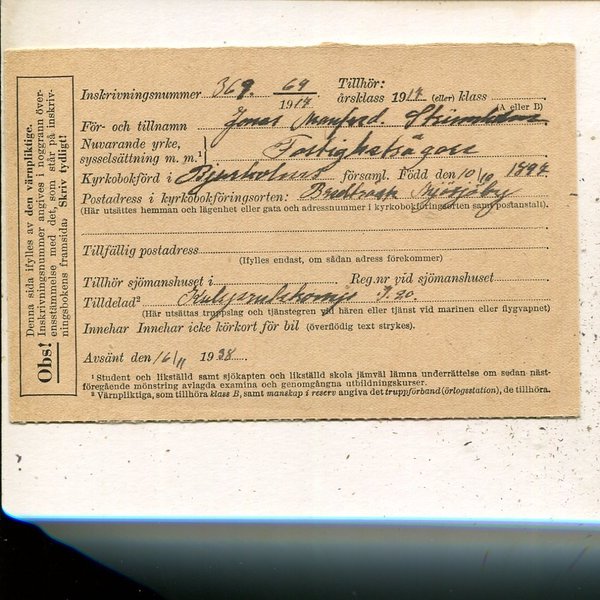 Obs! Denna sida ifylles av den värnpliktige.
Inskrivningsnummer angives i noggrann över-
ensstämmelse med det, som står på inskriv-
ningsbokens framsida. Skriv tydligt!
Inskrivningsnummer 369 69 Tillhör:
1917 årsklass 1917 (eller) klass
(A eller B)
För- och tillnamn Jonas Manfred
Nuvarande yrke,
sysselsättning m. m.¹ Fastighetsägare
Kyrkobokförd i Bjurholms församl. Född den 10/10 1897
Postadress i kyrkobokföringsorten: Bredträsk
(Här utsättes hemman och lägenhet eller gata och adressnummer i kyrkobokföringsorten samt postanstalt).
Tillfällig postadress
(Ifylles endast, om sådan adress förekommer)
Tillhör sjömanshuset i Reg.nr vid sjömanshuset
Tilldelad² I. 20.
(Här utsättas truppslag och tjänstegren vid hären eller tjänst vid marinen eller flygvapnet)
Innehar Innehar icke körkort för bil (överflödig text strykes).
Avsänt den 16/11 1938
¹ Student och likställd samt sjökapten och likställd skola jämväl lämna underrättelse om sedan näst-
föregående mönstring avlagda examina och genomgångna utbildningskurser.
² Värnpliktiga, som tillhöra klass B, samt manskap i reserv angiva det truppförband (örlogsstation), de tillhöra.